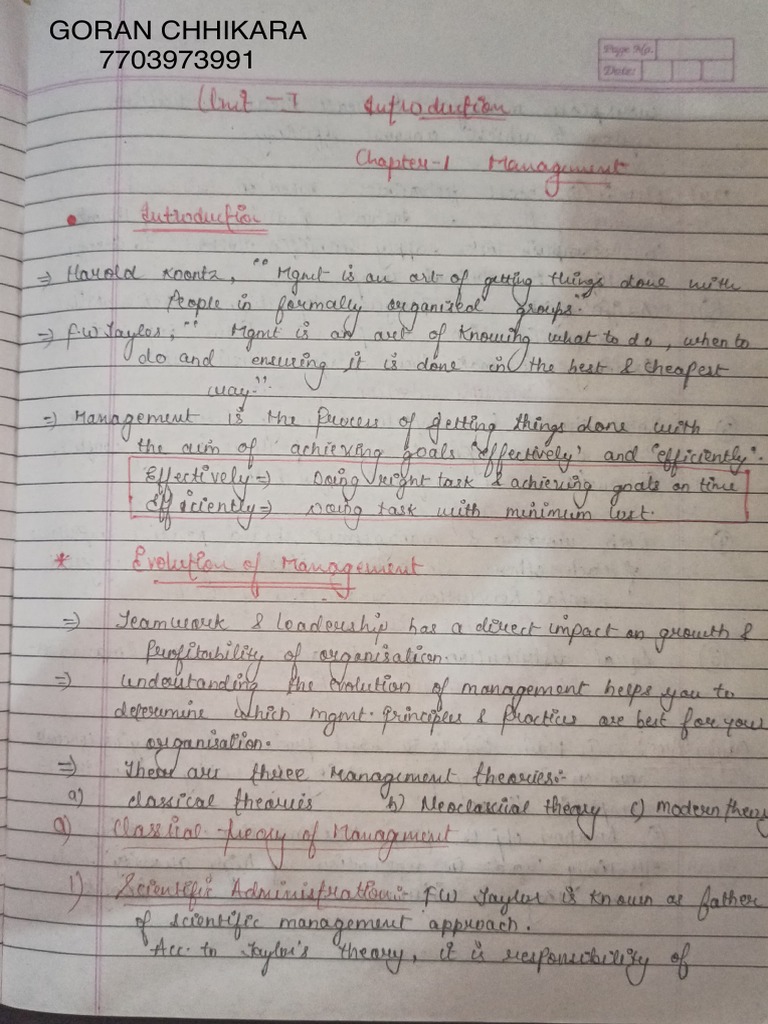 GORAN CHHIKARA
7703973991
Page No.
Date:
Unit - I Introduction
Chapter-1 Management
• Introduction
⇒ Harold Knontz, "Mgmt is an art of getting things done with
People in formally organized groups."
⇒ F.W Taylor, "Mgmt is an art of knowing what to do, when to
do and ensuring it is done in the best & cheapest
way."
⇒ Management is the Process of getting things done with
the aim of achieving goals 'effectively' and 'efficiently'.
Effectively ⇒ Doing right task & achieving goals on time
Efficiently ⇒ Doing task with minimum cost.
* Evolution of Management
⇒ Teamwork & leadership has a direct impact on growth &
Profitability of organisation.
⇒ Understanding the evolution of management helps you to
determine which mgmt. Principles & Practices are best for your
organisation.
⇒ There are three management theories:-
a) classical theories b) Neoclassical theory c) modern theory
a) Classical theory of Management
1) Scientific Administration:- FW Taylor is known as father
of scientific management approach.
Acc. to Taylor's theory, it is responsibility of